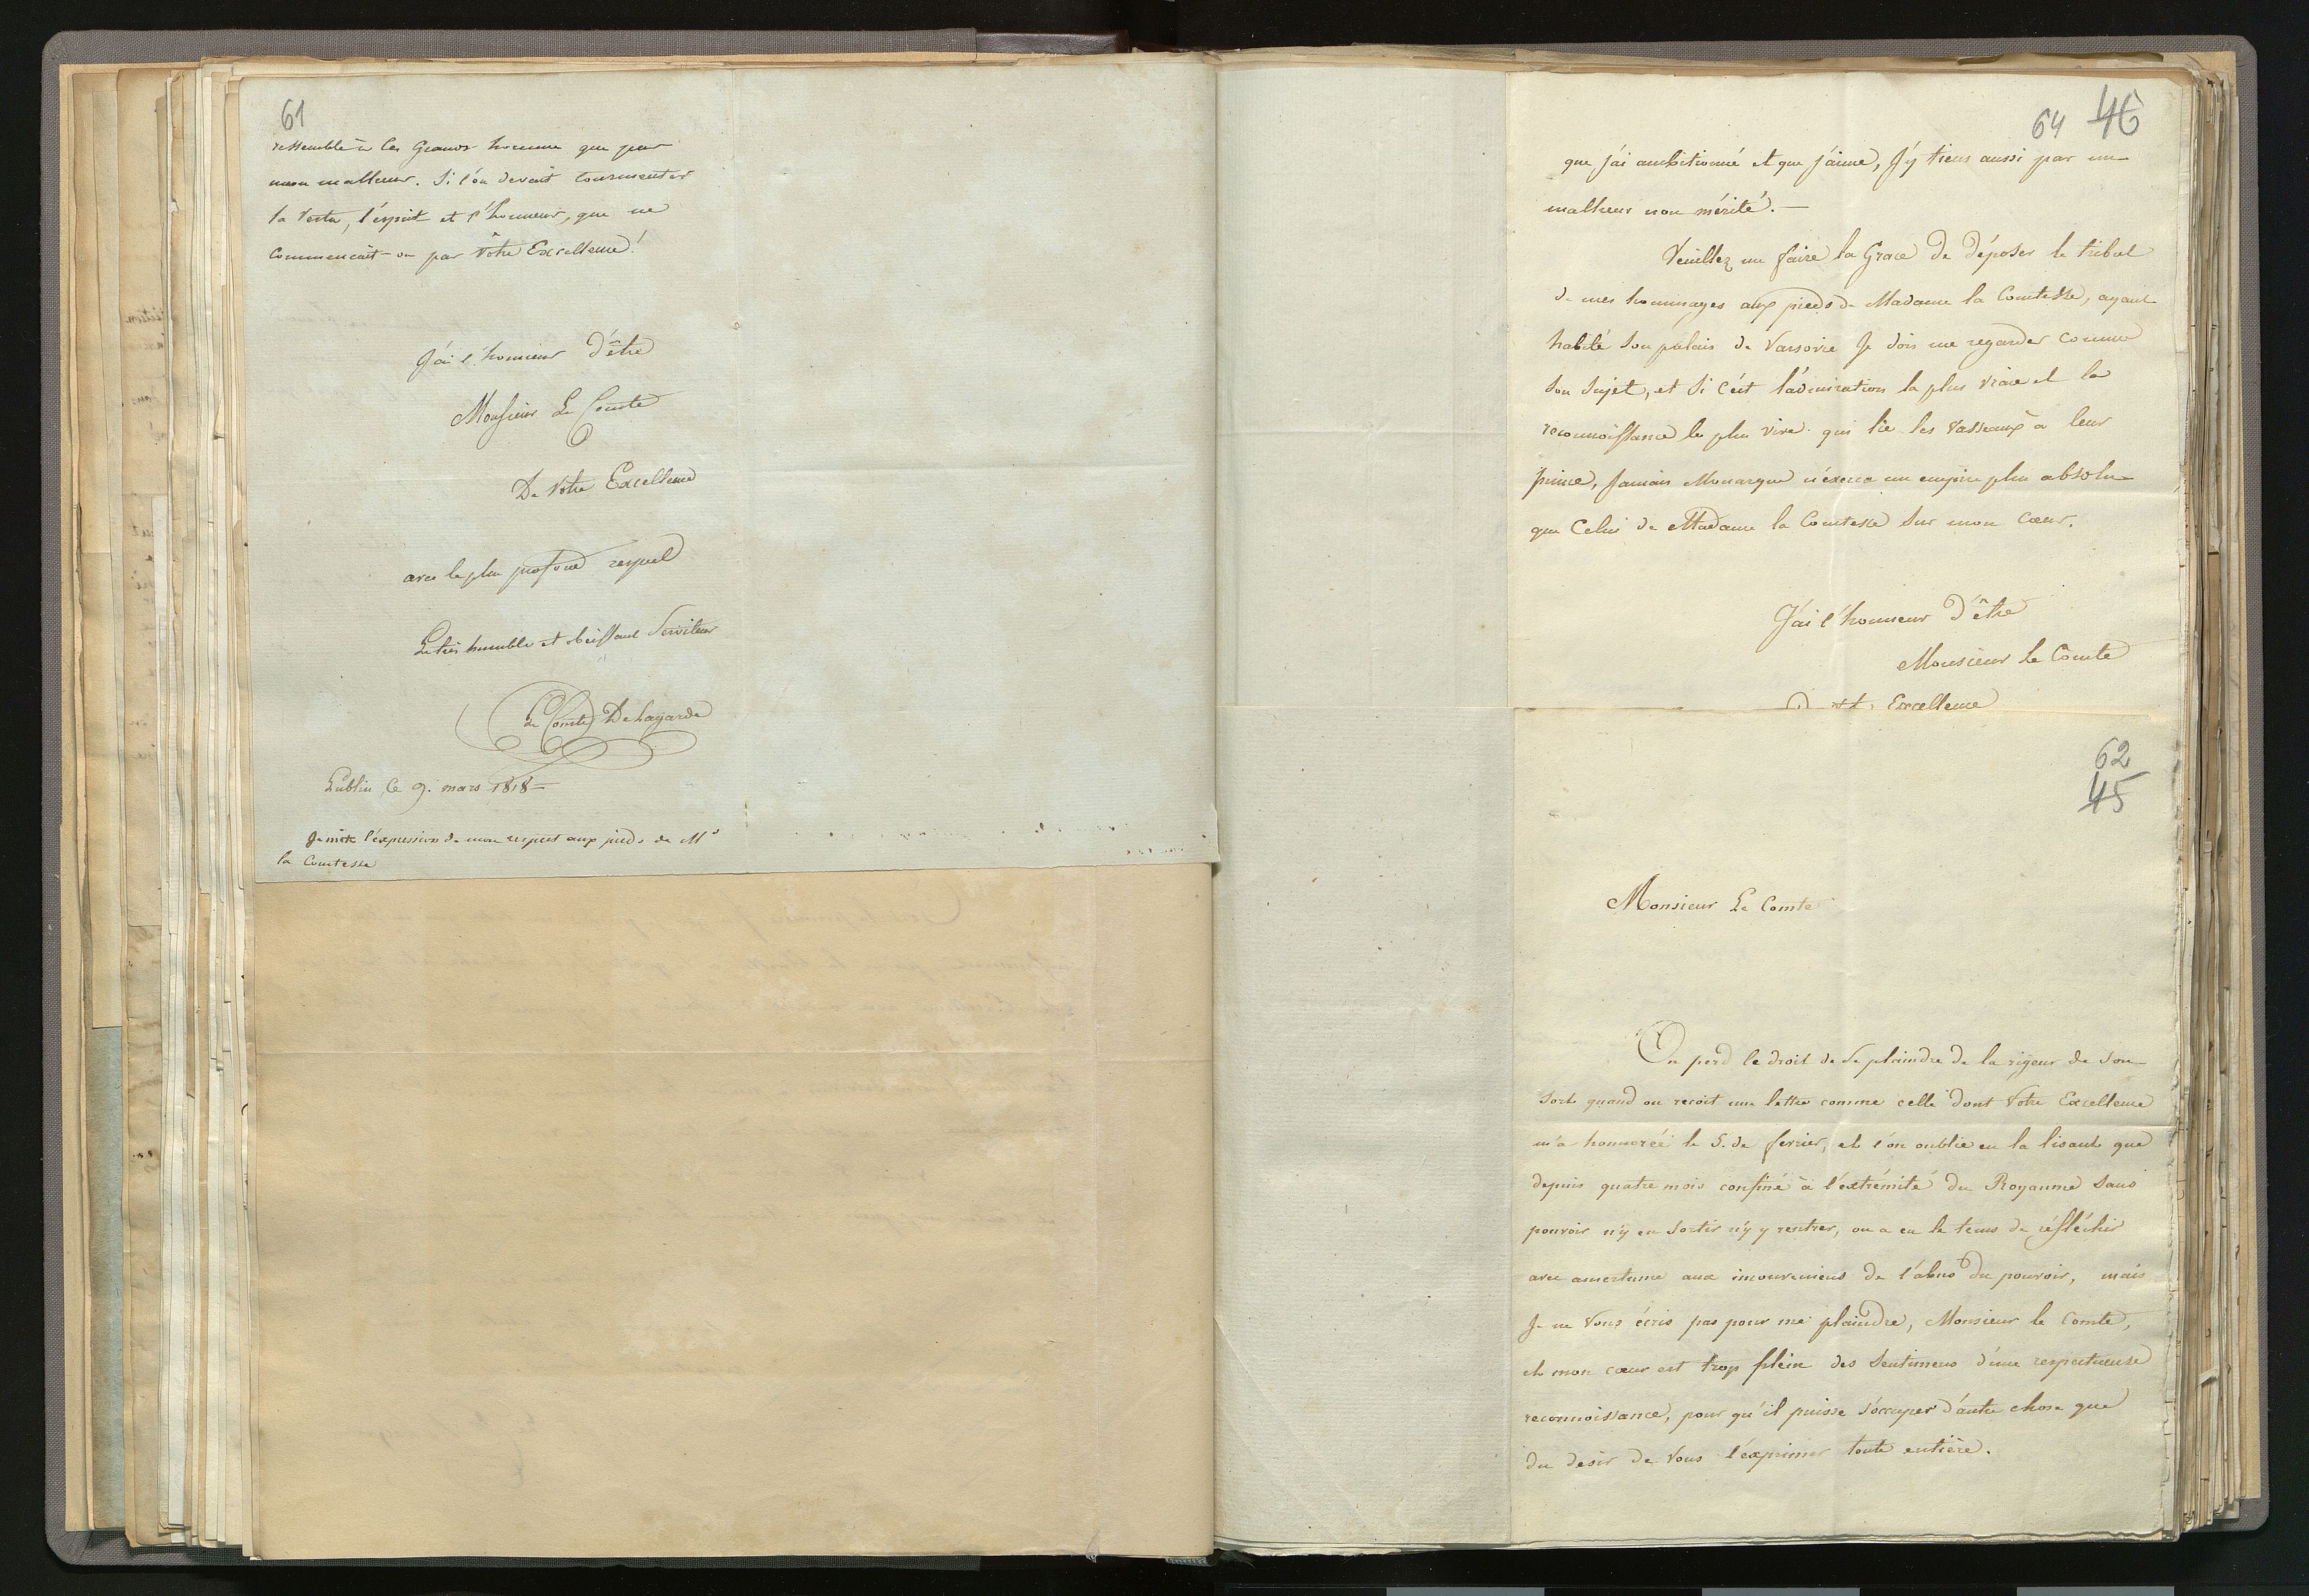 61
ressemble à ces Grands hommes que par
mon malheur. Si l'on devait tourmenter
la vertu, l'esprit et l'honneur, que ne
commencait-on par Votre Excellence!
J'ai l'honneur d'être
Monsieur Le Comte
De Votre Excellence
avec le plus profond respect
Le très humble et obéissant Serviteur
Le Comte De Lagarde
Lublin, le 9. mars 1818
Je mets l'expression de mon respect aux pieds de Me
la Comtesse
64 46
que j'ai ambitionné et que j'aime, J'y tiens aussi par un
malheur non mérité.—
Veuillez me faire la Grace de déposer le tribut
de mes hommages aux pieds de Madame la Comtesse, ayant
habité Son palais de Varsovie Je dois me regarder comme
Son Sujet, et Si c'est l'admiration la plus vraie et la
reconnoissance la plus vive qui lie les Vasseaux à leur
prince, Jamais Monarque n'exerca un empire plus absolu
que Celui de Madame la Comtesse Sur mon cœur.
J'ai l'honneur d'être
Monsieur le Comte
Excellence
62
45
Monsieur Le Comte
On perd le droit de Se plaindre de la rigeur de Son
Sort quand on recoit une lettre comme celle dont Votre Excellence
m'a honnoréé le 5. de fevrier, et l'on oublie en la lisant que
depuis quatre mois confiné à l'extrémité du Royaume Sans
pouvoir n'y en Sortir n'y y rentrer, on a eu le tems de réfléchir
avec amertume aux inconveniens de l'abus du pouvoir, mais
Je ne Vous écris pas pour me plaindre, Monsieur le Comte,
et mon cœur est trop plein des Sentimens d'une respectueuse
reconnoissance, pour qu'il puisse s'occuper d'autre chose que
du desir de Vous l'exprimer toute entière.